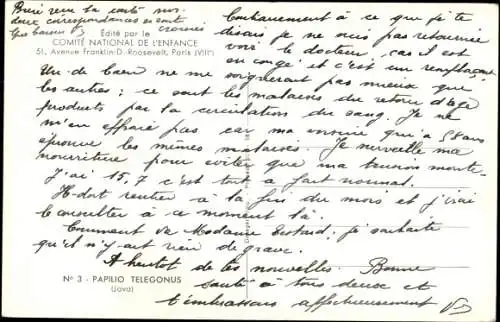 Bien reçu ta carte nos
deux correspondances se sont
croisées
Gros baisers
Édité par le
COMITÉ NATIONAL DE L'ENFANCE
51, Avenue Franklin-D.-Roosevelt, Paris (VIIIe)
Contrairement à ce que je te
disais je ne suis pas retournée
voir le docteur, car il est
en congé et c'est un remplaçant
de Caen ne me soignerait pas mieux que
les autres ; ce sont les malaises du retour d'âge
produits par la circulation du sang. Je ne
m'en effraie pas car ma voisine qui a 58 ans
éprouve les mêmes malaises. Je surveille ma
nourriture pour éviter que ma tension monte.
J'ai 15,7 c'est tout à fait normal.
Il doit rentrer à la fin du mois et j'irai
consulter à ce moment là.
Comment va Madame ; je souhaite
qu'il n'y ait rien de grave.
A bientôt de tes nouvelles. Bonne
santé à tous deux et
t'embrassons affectueusement
N° 3 - PAPILIO TELEGONUS
(Java)